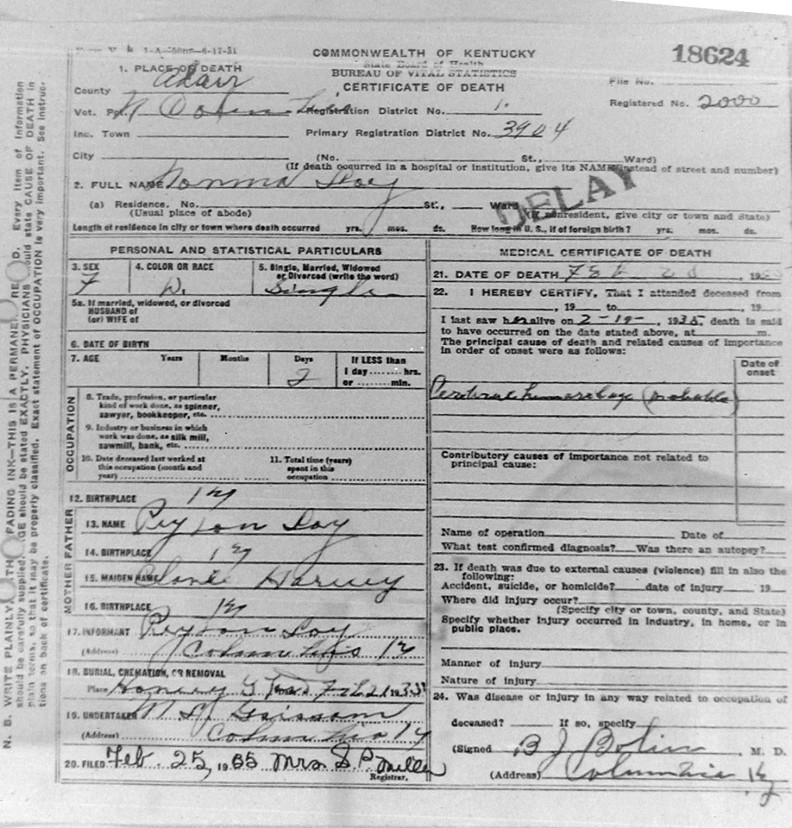 COMMONWEALTH OF KENTUCKY
State Board of Health
BUREAU OF VITAL STATISTICS
CERTIFICATE OF DEATH
18624
File No.
Registered No. 2000
1. PLACE OF DEATH
County Adair
Vot. Registration District No. 1.
Inc. Town Primary Registration District No. 3904
City (No. St., Ward)
(If death occurred in a hospital or institution, give its NAME instead of street and number)
2. FULL NAME Norma
(a) Residence. No. St., Ward
(Usual place of abode) (If nonresident, give city or town and State)
DELAY
Length of residence in city or town where death occurred yrs. mos. ds. How long in U. S., if of foreign birth? yrs. mos. ds.
PERSONAL AND STATISTICAL PARTICULARS
3. SEX 4. COLOR OR RACE 5. Single, Married, Widowed
or Divorced (write the word)
F W. Single
5a. If married, widowed, or divorced
HUSBAND of
(or) WIFE of
6. DATE OF BIRTH
7. AGE Years Months Days If LESS than
1 day ...... hrs.
or ...... min.
2
OCCUPATION
8. Trade, profession, or particular
kind of work done, as spinner,
sawyer, bookkeeper, etc.
9. Industry or business in which
work was done, as silk mill,
sawmill, bank, etc.
10. Date deceased last worked at
this occupation (month and
year)
11. Total time (years)
spent in this
occupation
12. BIRTHPLACE Ky
FATHER
13. NAME Peyton
14. BIRTHPLACE Ky
MOTHER
15. MAIDEN NAME Harvey
16. BIRTHPLACE Ky
17. INFORMANT Peyton
(Address) Columbia Ky
18. BURIAL, CREMATION, OR REMOVAL
Place Date Feb 21 1935
19. UNDERTAKER Grissom
(Address) Columbia Ky
20. FILED Feb. 25, 1935 Mrs S. P. Miller
Registrar.
MEDICAL CERTIFICATE OF DEATH
21. DATE OF DEATH Feb 20 , 19
22. I HEREBY CERTIFY, That I attended deceased from
, 19 to , 19
I last saw her alive on 2-19-, 1935, death is said
to have occurred on the date stated above, at m.
The principal cause of death and related causes of importance
in order of onset were as follows:
Date of
onset
Cerebral hemorrhage (probable)
Contributory causes of importance not related to
principal cause:
Name of operation Date of
What test confirmed diagnosis? Was there an autopsy?
23. If death was due to external causes (violence) fill in also the
following:
Accident, suicide, or homicide? date of injury 19
Where did injury occur?
(Specify city or town, county, and State)
Specify whether injury occurred in industry, in home, or in
public place.
Manner of injury
Nature of injury
24. Was disease or injury in any way related to occupation of
deceased? If so, specify
(Signed B J Bolin , M. D.
(Address) Columbia Ky